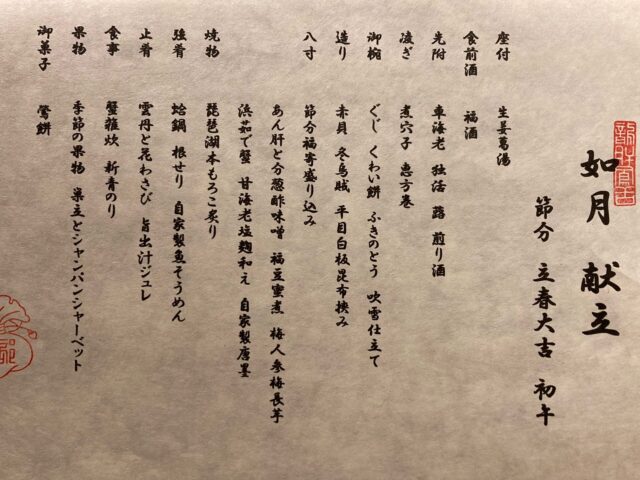 如月 献立
節分 立春大吉 初午
座付 生姜葛湯
食前酒 福酒
先附 車海老 独活 蕗 煎り酒
凌ぎ 煮穴子 恵方巻
御椀 ぐじ くわい餅 ふきのとう 吹雪仕立て
造り 赤貝 冬烏賊 平目白板昆布挟み
八寸 節分福寄盛り込み
あん肝と分葱酢味噌 福豆蜜煮 梅人参梅長芋
浜茹で蟹 甘海老塩麹和え 自家製唐墨
焼物 琵琶湖本もろこ炙り
強肴 蛤鍋 根せり 自家製魚そうめん
止肴 雲丹と花わさび 旨出汁ジュレ
食事 蟹雑炊 新青のり
果物 季節の果物 巣立とシャンパンシャーベット
御菓子 鶯餅